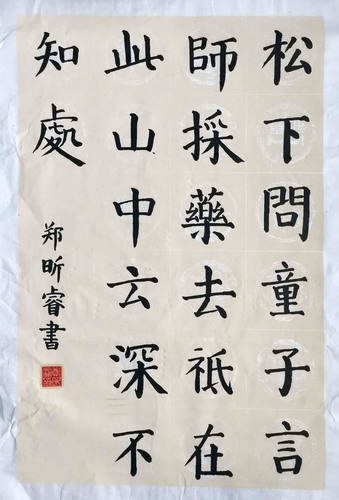 松下問童子言
師採藥去祗在
此山中云深不
知處
郑昕睿書